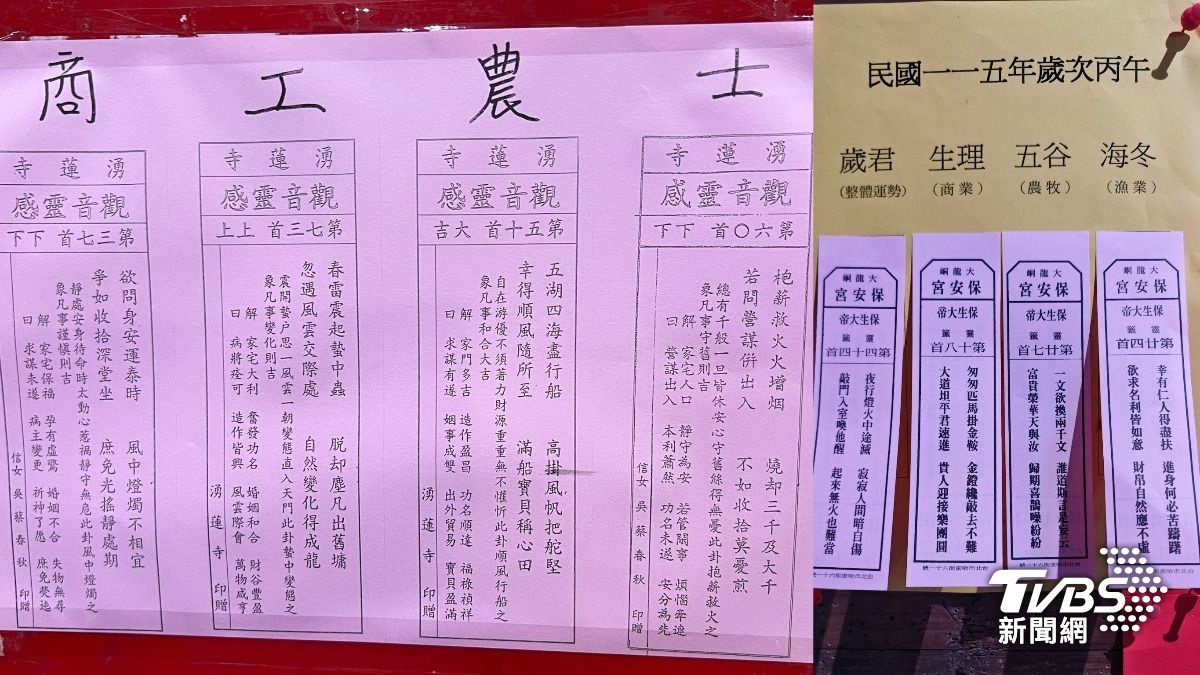 士
湧蓮寺
觀音靈感
第六〇首 下下
枹薪救火火增烟 燒却三千及大千
若問營謀併出入 不如收拾莫憂煎
總有千般一旦皆休安心守舊綜得無憂此卦抱薪救火之
象凡事守舊則吉
解 家宅人口 靜守為安 若管閑事 煩惱牽連
曰 營謀出入 本利蕭然 功名未遂 安分為先
信女 吳蔡春秋 印贈
農
湧蓮寺
觀音靈感
第五十首 大吉
五湖四海盡行船 高掛風帆把舵堅
幸得順風隨所至 滿船寶貝稱心田
自在游優不須著力財源重重無不懽忻此卦順風行船之
象凡事和合大吉
解 家門多吉 造作盈昌 功名順達 福祿禎祥
曰 求謀有遂 姻事成雙 出外貿易 寶貝盈滿
湧蓮寺 印贈
工
湧蓮寺
觀音靈感
第七三首 上上
春雷震起蟄中蟲 脱却塵凡出舊墉
忽遇風雲交際處 自然變化得成龍
震開蟄户思一風雲一朝變態直入天門此卦蟄中變態之
象凡事變化則吉
解 家宅大利 奮發功名 婚姻和合 財谷豐盈
曰 病將痊可 造作皆興 風雲際會 萬物咸亨
湧蓮寺 印贈
商
湧蓮寺
觀音靈感
第三七首 下下
欲問身安運泰時 風中燈燭不相宜
爭如收拾深堂坐 庶免光搖靜處期
靜處安身待命時太動心惹禍靜守無危此卦風中燈燭之
象凡事謹慎則吉
解 家宅保福 孕有虛驚 婚姻不合 失物無尋
曰 求謀未遂 病主變更 祈神了愿 庶免熒熒
信女 吳蔡春秋 印贈
民國一一五年歲次丙午
歲君 生理 五谷 海冬
(整體運勢) (商業) (農牧) (漁業)
大龍峒
保安宮
保生大帝
靈籤
第廿四首
幸有仁人得盡扶 進身何必苦躊躇
欲求名利皆如意 財帛自然應不虛
台北市哈密街六十一號
大龍峒
保安宮
保生大帝
靈籤
第廿七首
一文欲換兩千文 誰道斯言是妄云
富貴榮華天與汝 歸期喜鵲噪紛紛
台北市哈密街六十一號
大龍峒
保安宮
保生大帝
靈籤
第十八首
匆匆匹馬掛金鞍 金鐙纔敲去不難
大道坦平君速進 貴人迎接樂團圓
台北市哈密街六十一號
大龍峒
保安宮
保生大帝
靈籤
第四十四首
夜行燈火中途滅 寂寂人間暗自傷
敲門入室喚他醒 起來無火也難當
台北市哈密街六十一號
TVBS
新聞網